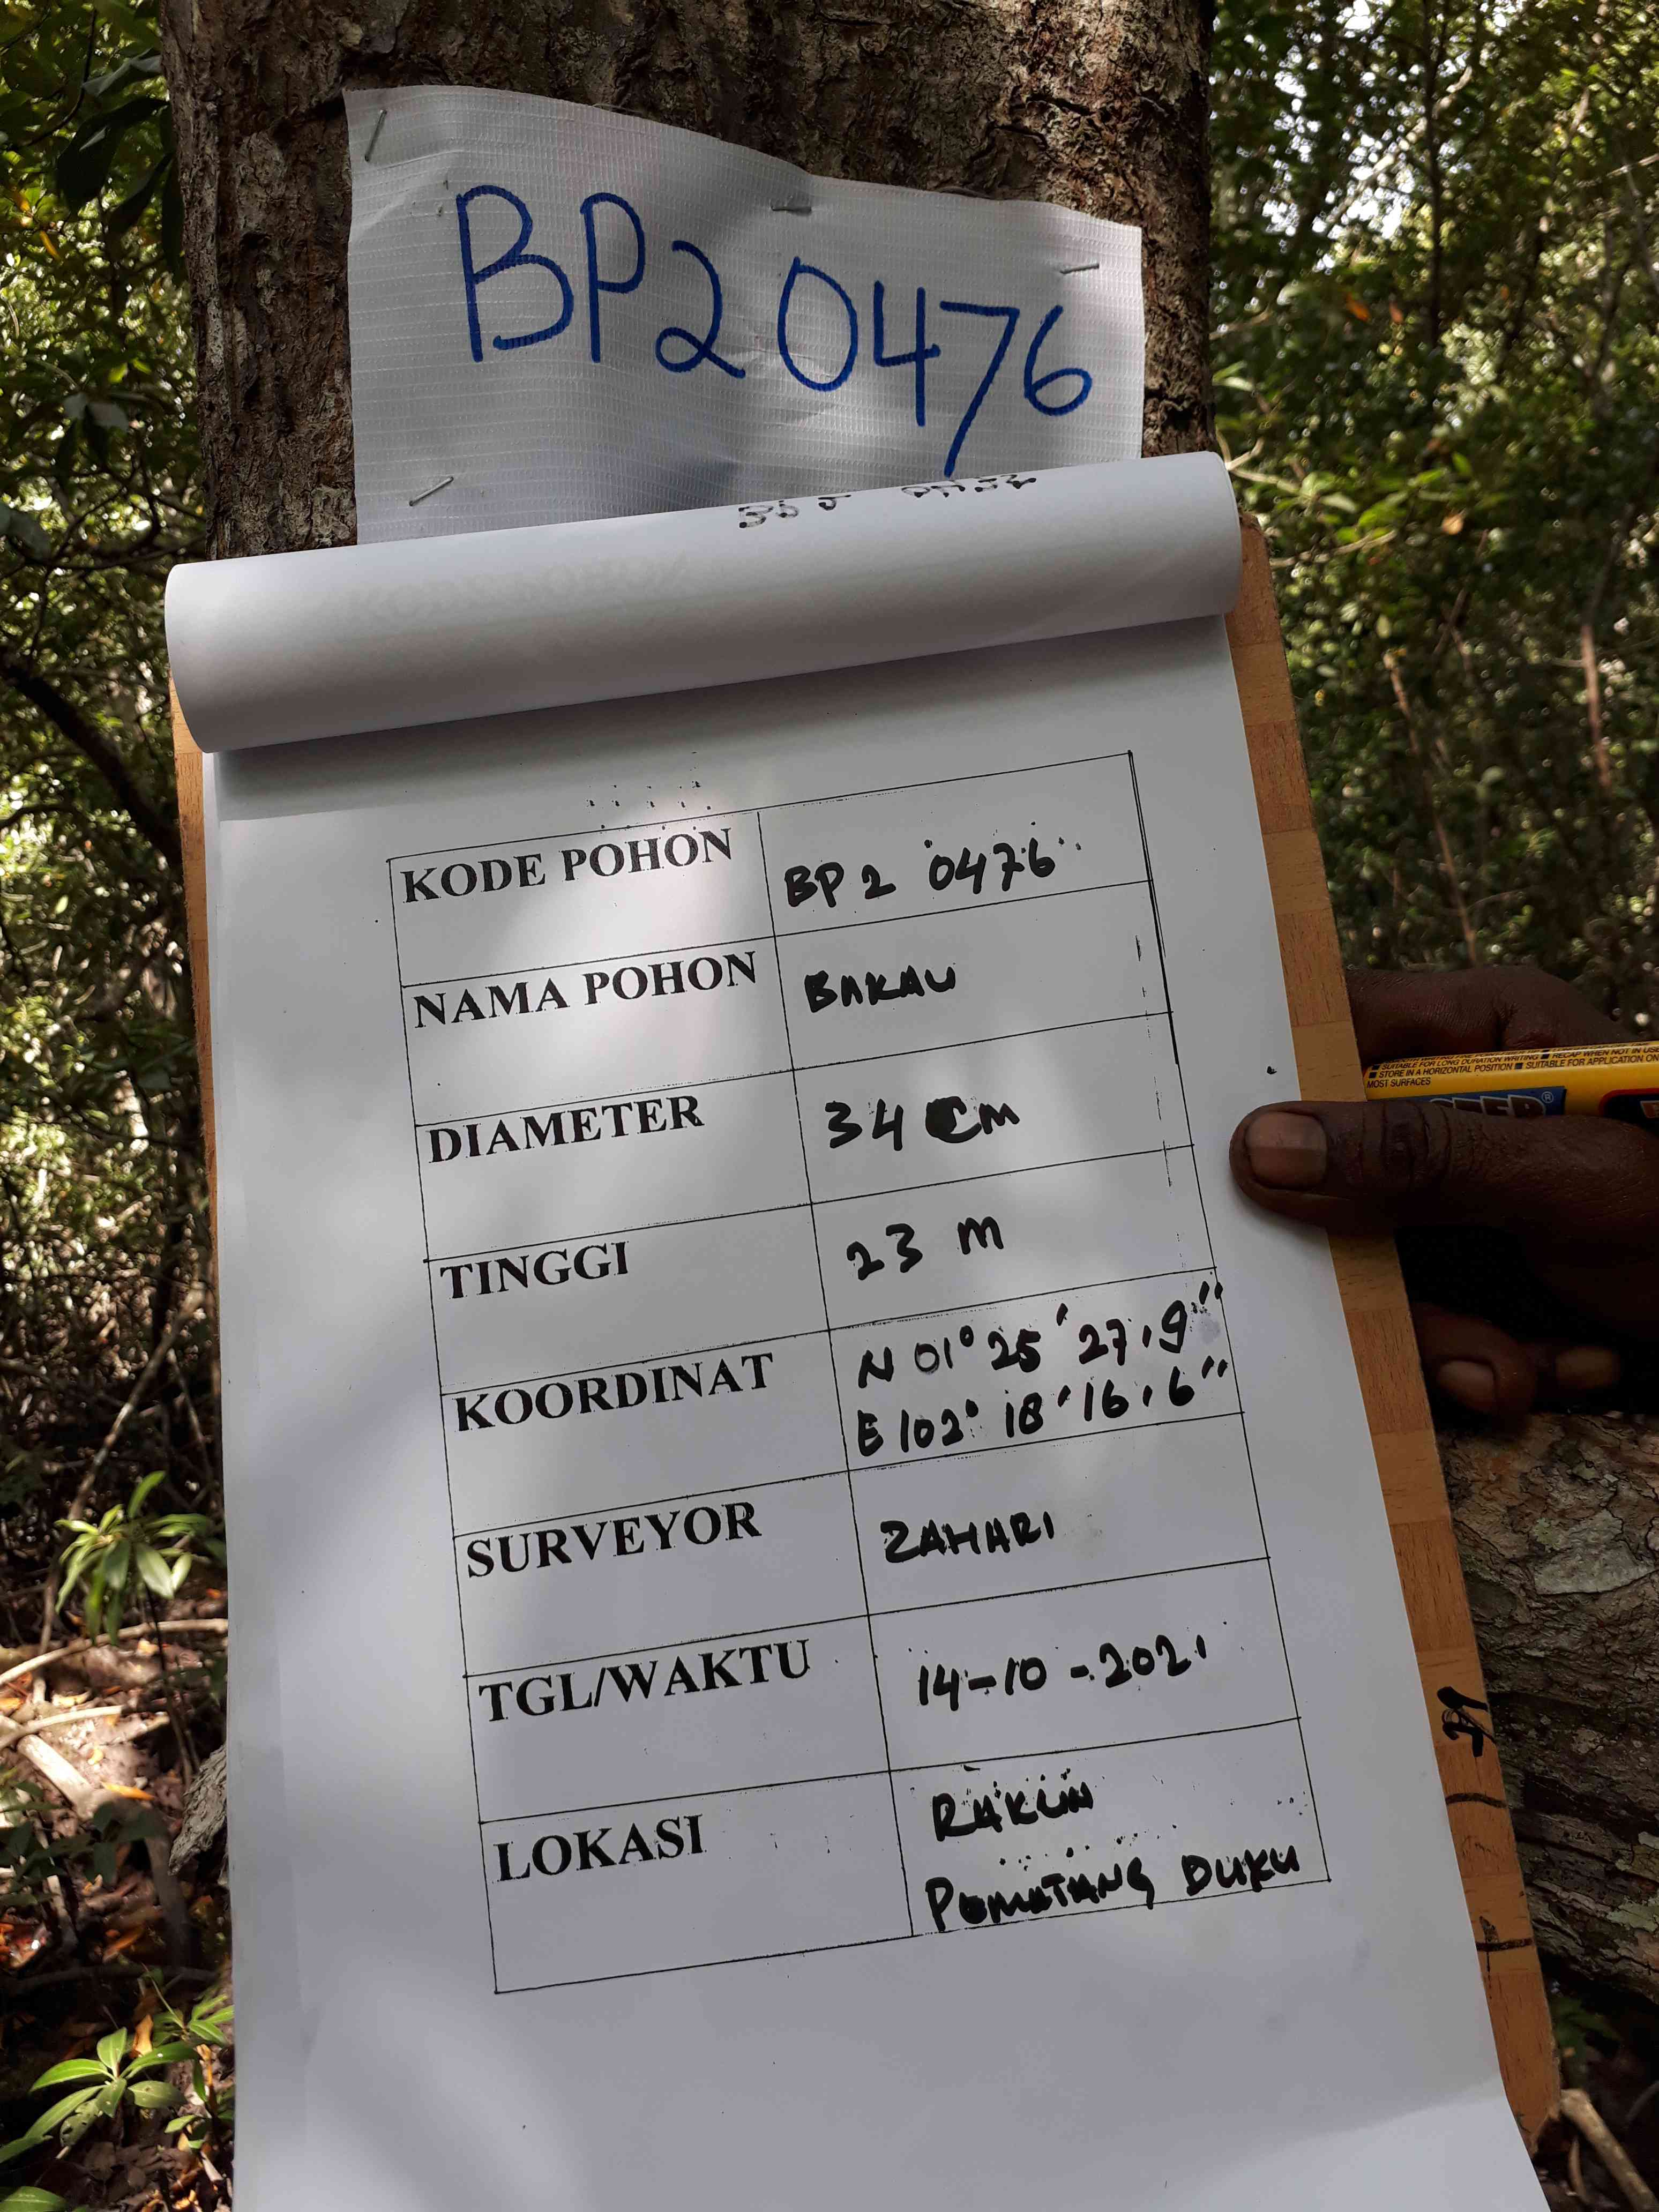 BP20476
KODE POHON BP2 0476
NAMA POHON BAKAU
DIAMETER 34 CM
TINGGI 23 M
KOORDINAT N 01° 25' 27,9"
E 102° 18' 16,6"
SURVEYOR ZAHARI
TGL/WAKTU 14-10-2021
LOKASI RAKUN
PEMATANG DUKU
SUITABLE FOR LONG DURATION WRITING ■ RECAP WHEN NOT IN USE
■ STORE IN A HORIZONTAL POSITION ■ SUITABLE FOR APPLICATION ON
MOST SURFACES